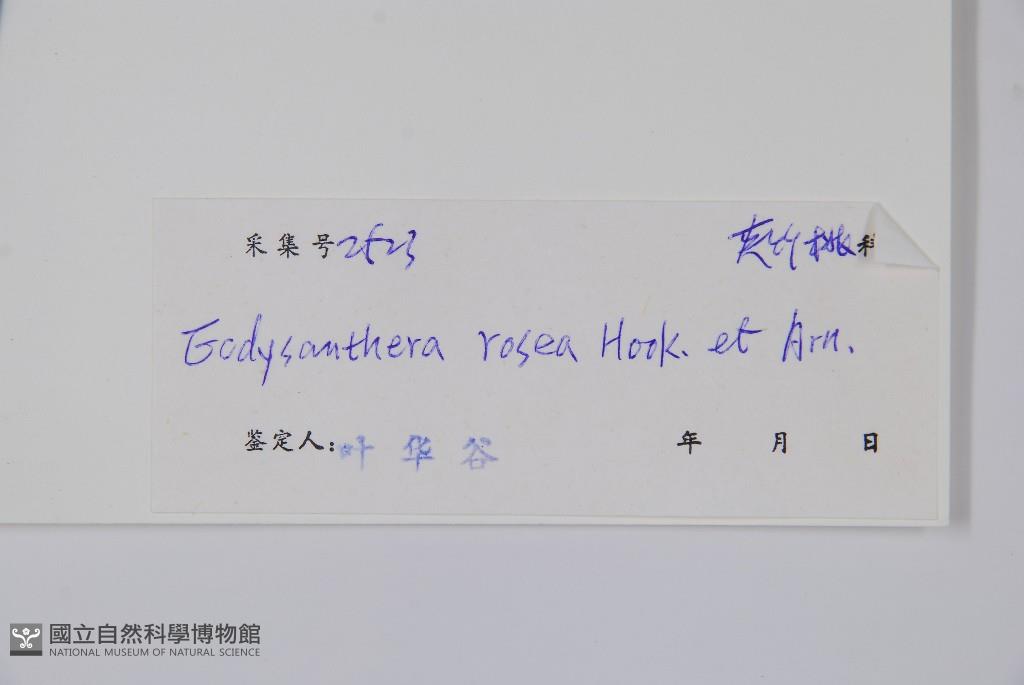 采集号 2523 夹竹桃科
Ecdysanthera rosea Hook. et Arn.
鉴定人: 叶华谷 年 月 日
國立自然科學博物館
NATIONAL MUSEUM OF NATURAL SCIENCE